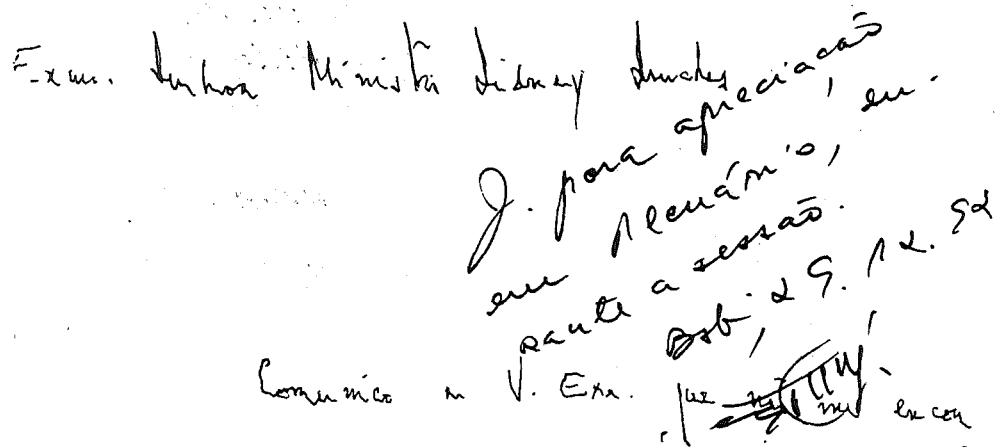 Exmo. Senhor Ministro Sidney Sanches
J. para apreciação,
em plenário, du-
rante a sessão.
Bsb, 29.12.92
Comunico a V. Exa. que